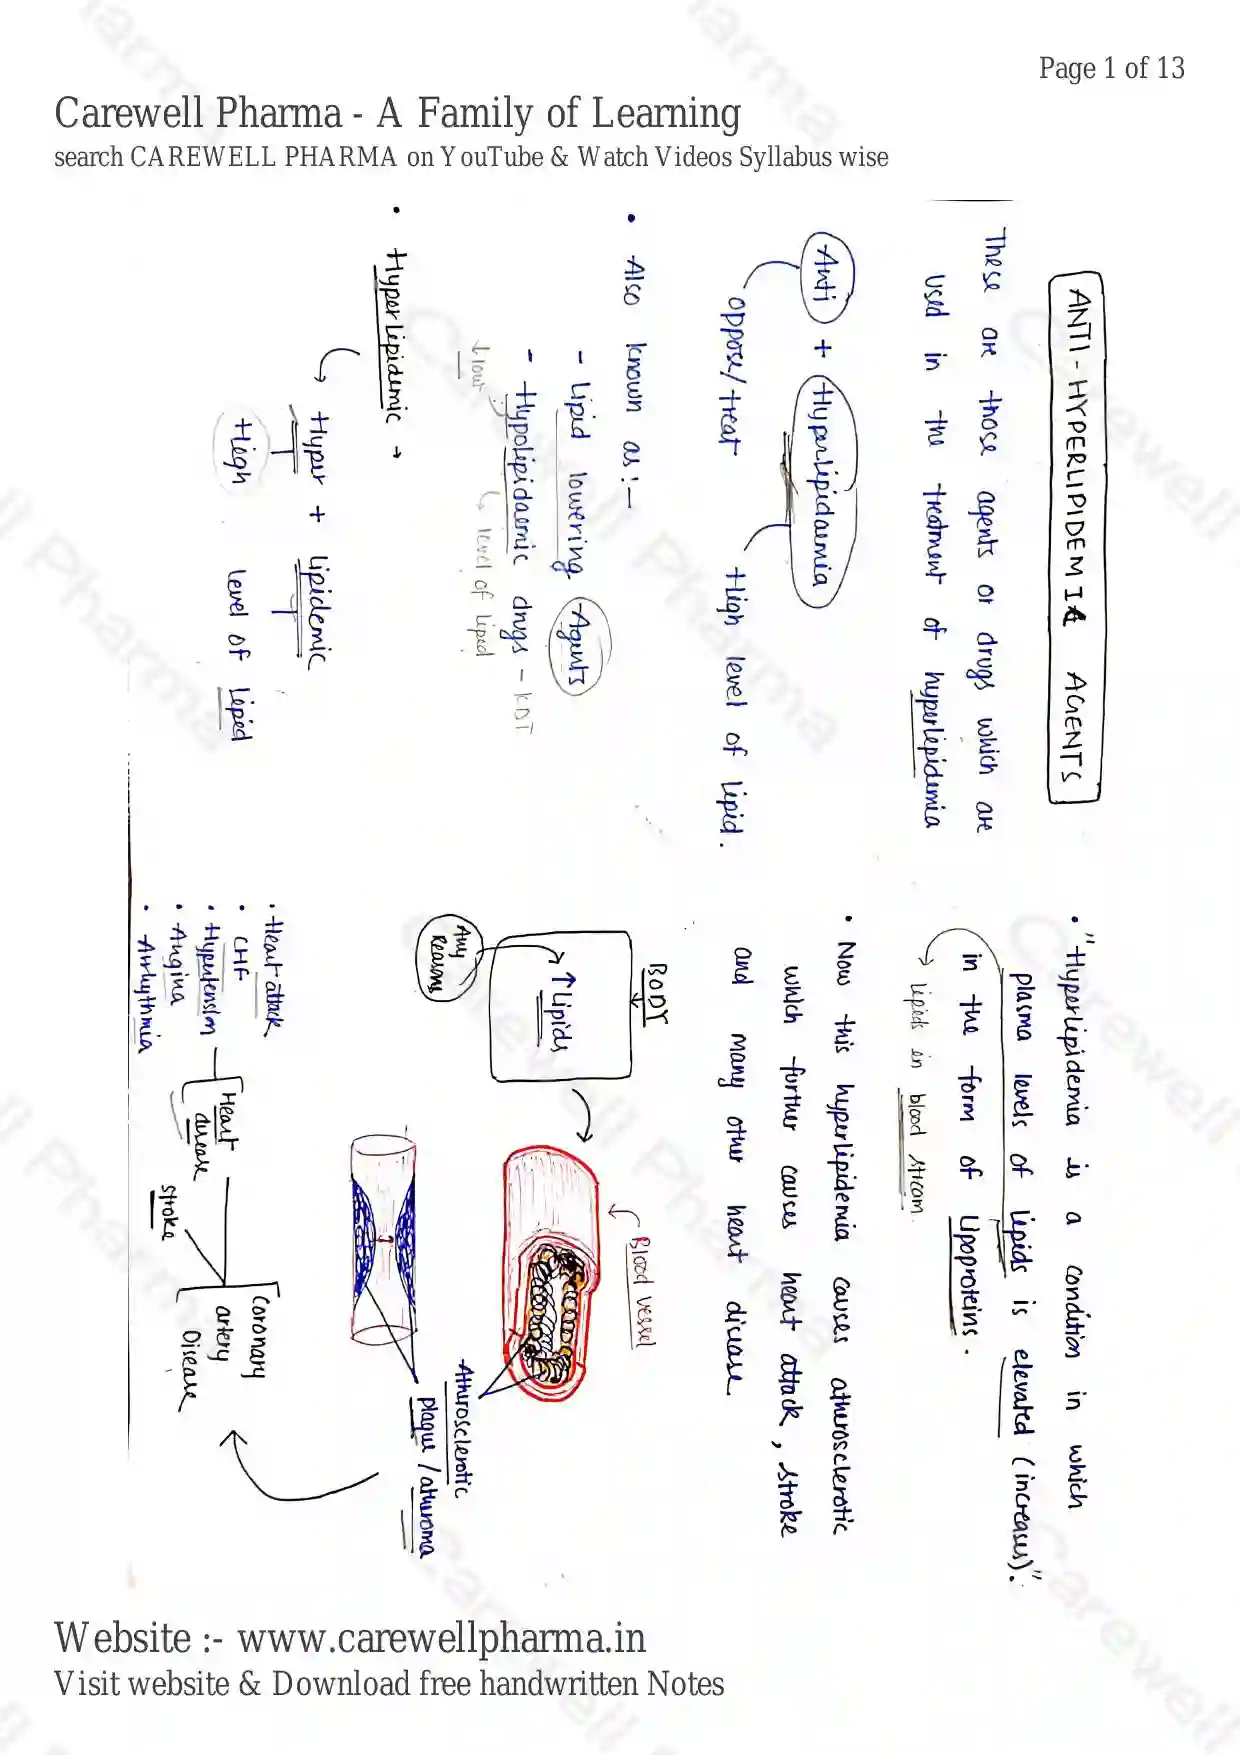 Page 1 of 13
Carewell Pharma - A Family of Learning
search CAREWELL PHARMA on YouTube & Watch Videos Syllabus wise
ANTI-HYPERLIPIDEMIC AGENTS
These are those agents or drugs which are
used in the treatment of hyperlipidemia
Anti + Hyperlipidaemia
oppose/treat High level of lipid.
• Also known as:-
- Lipid lowering Agents
- Hypolipidaemic drugs - KDT
↓low level of lipid
• Hyperlipidemic →
Hyper + lipidemic
High level of lipid
• "Hyperlipidemia is a condition in which
plasma levels of lipids is elevated (increases)."
in the form of Lipoproteins.
lipids in blood stream
• Now this hyperlipidemia causes atherosclerotic
which further causes heart attack, stroke
and many other heart disease
BODY
↑Lipids
Any
Reasons
Blood vessel
Athirosclerotic
plaque / atheroma
Coronary
artery
Disease
Heart
disease
stroke
• Heart attack
• CHF
• Hypertension
• Angina
• Arrhythmia
Website :- www.carewellpharma.in
Visit website & Download free handwritten Notes
Carewell Pharma